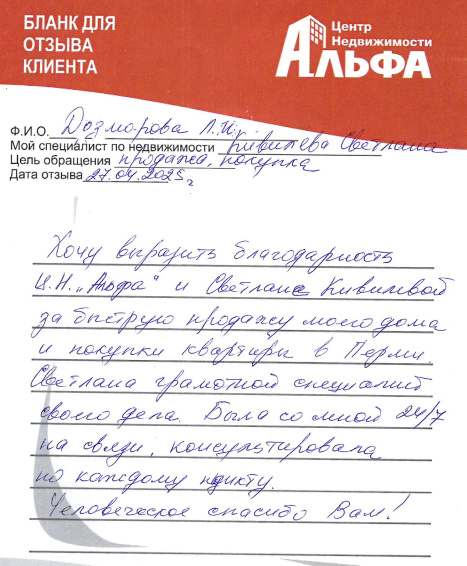 БЛАНК ДЛЯ
ОТЗЫВА
КЛИЕНТА
Центр
Недвижимости
АЛЬФА
Ф.И.О. Дозморова Л.И.
Мой специалист по недвижимости Кивилева Светлана
Цель обращения продажа, покупка
Дата отзыва 27.04.2025г
Хочу выразить благодарность
Ц.Н. „Альфа" и Светлане Кивилевой
за быструю продажу моего дома
и покупки квартиры в Перми.
Светлана грамотной специалист
своего дела. Была со мной 24/7
на связи, консультировала
по каждому пункту.
Человеческое спасибо Вам!